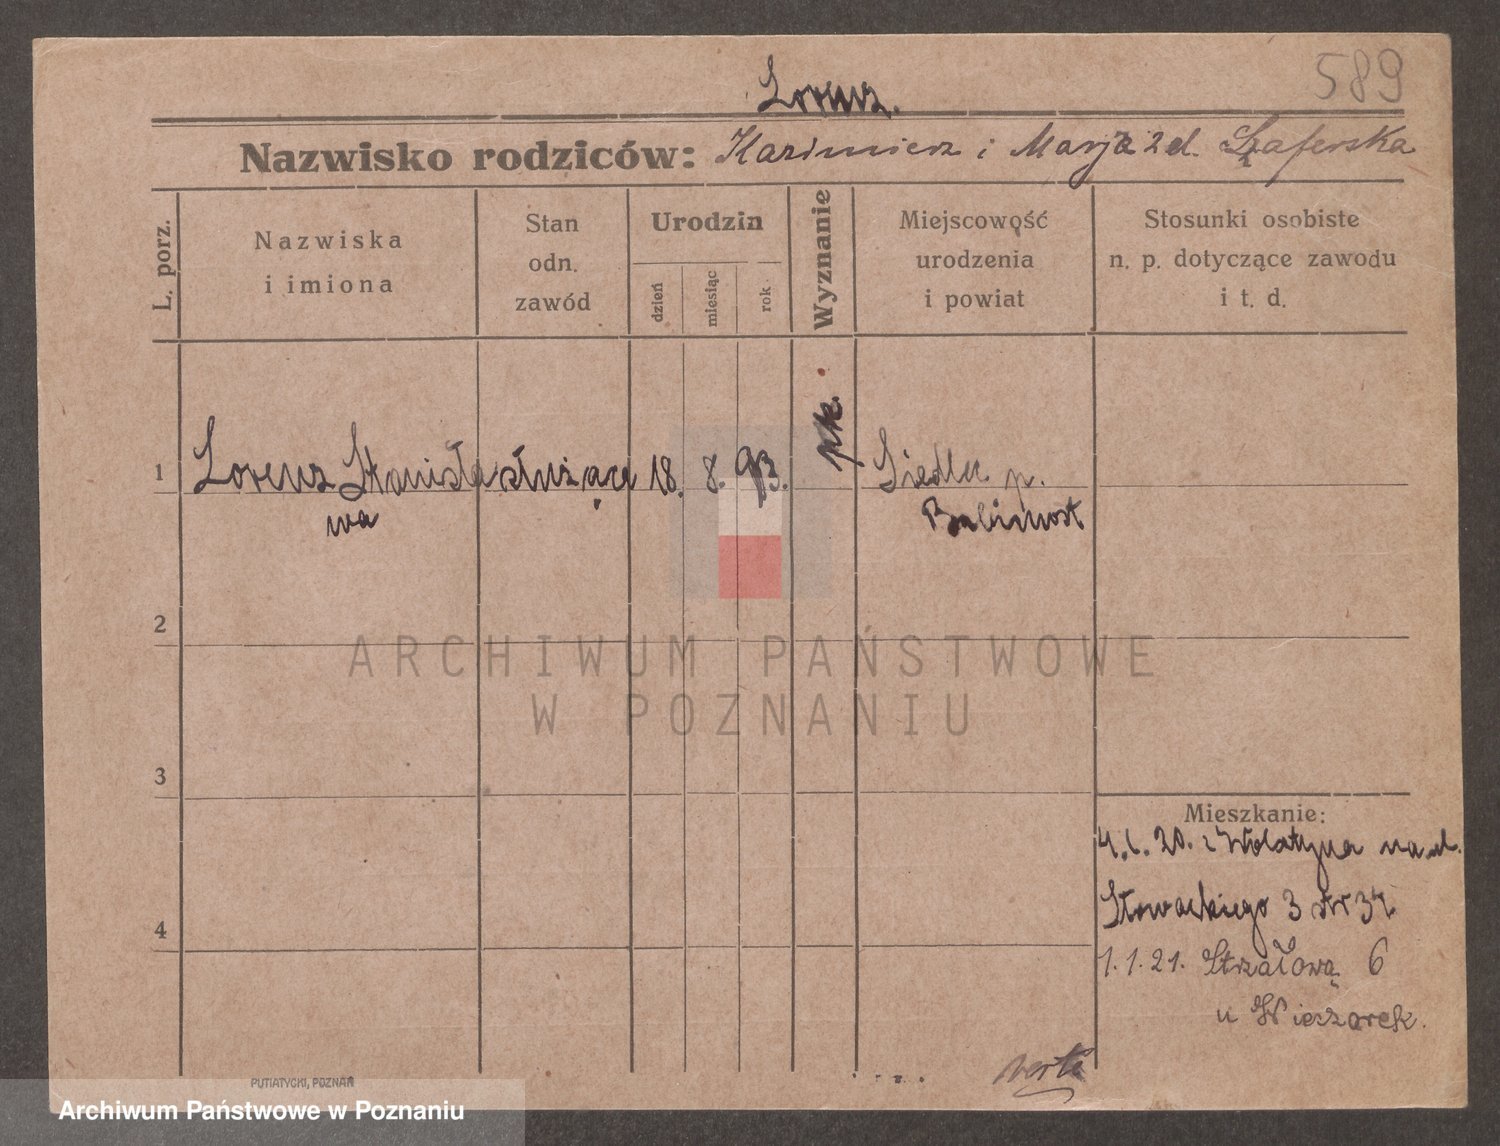 589
Lorenz.
Nazwisko rodziców: Kazimierz i Marja zd. Szaferska
L. porz.
Nazwiska
i imiona
Stan
odn.
zawód
Urodzin
dzień
miesiąc
rok
Wyznanie
Miejscowość
urodzenia
i powiat
Stosunki osobiste
n. p. dotyczące zawodu
i t. d.
1 Lorenz Stanisła służąca 18. 8. 93. rk. Siedlec p.
wa Babimost
2
ARCHIWUM PAŃSTWOWE
W POZNANIU
3
Mieszkanie:
4.6.20. z Wolsztyna na ul.
Słowackiego 3 ptr
4
1.1.21. Strzałowa 6
u Wieczorek.
verte
PUTIATYCKI, POZNAŃ
Archiwum Państwowe w Poznaniu